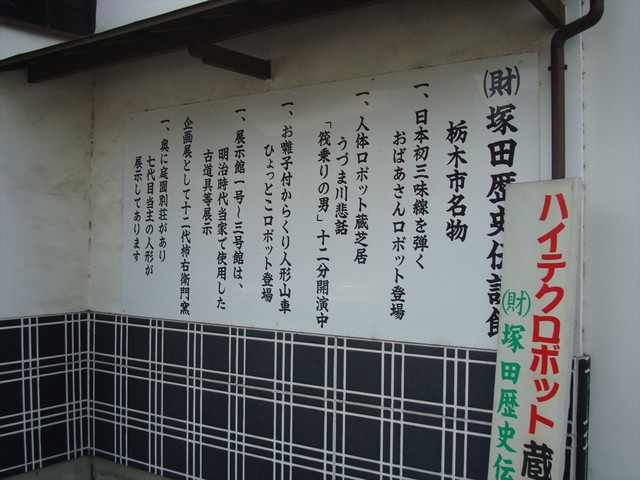 (財)塚田歴史伝説館
栃木市名物
一、日本初三味線を弾く
おばあさんロボット登場
一、人体ロボット蔵芝居
うづま川悲話
「筏乗りの男」十二分開演中
一、お囃子付からくり人形山車
ひょっとこロボット登場
一、展示館一号〜三号館は、
明治時代当家で使用した
古道具等展示
企画展として十二代柿右衛門窯
一、奥に庭園別荘があり
七代目当主の人形が
展示してあります
ハイテクロボット蔵
(財)塚田歴史伝